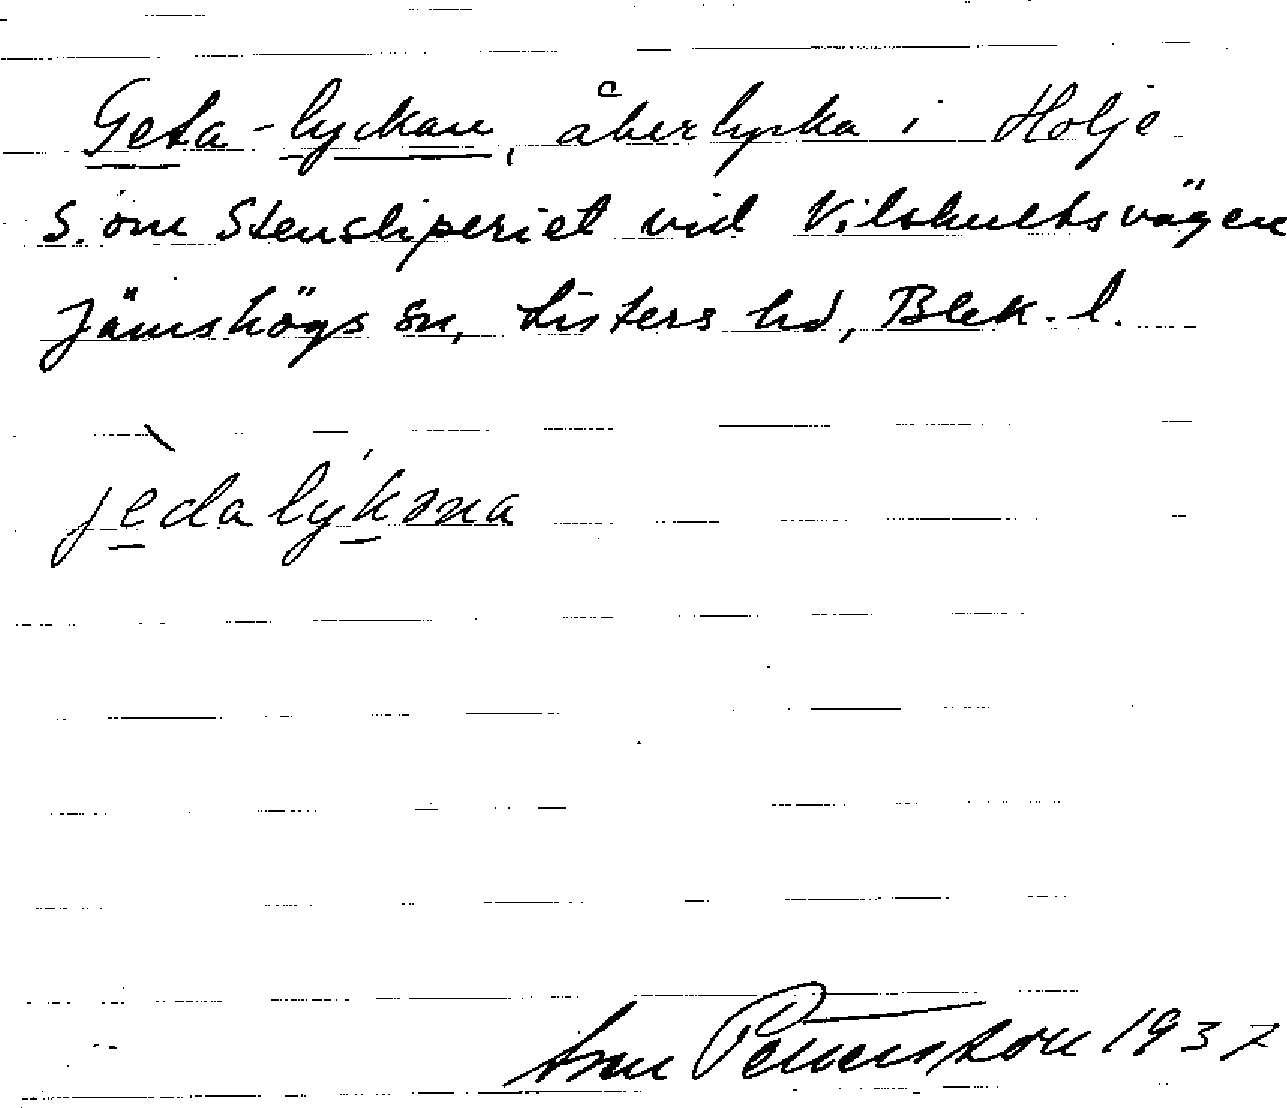 Geta-lyckan, åkerlycka i Holje
S. om Stensliperiet vid Vilshultsvägen
Jämshögs sn, Listers hd, Blek. l.
jèdalýkəna
Pettersson 1937